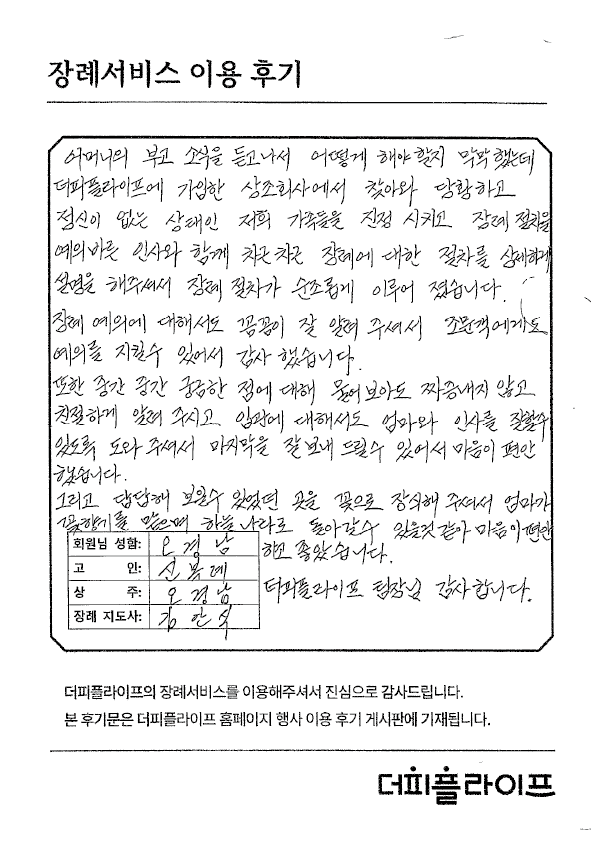 장례서비스 이용 후기
어머니의 부고 소식을 듣고나서 어떻게 해야 할지 막막했는데
더피플라이프에 가입한 상조회사에서 찾아와 당황하고
정신이 없는 상태인 저희 가족들을 진정 시키고 장례 절차을
예의바른 인사와 함께 차근차근 장례에 대한 절차를 상세하게
설명을 해주셔서 장례 절차가 순조롭게 이루어 졌습니다.
장례 예의에 대해서도 꼼꼼이 잘 알려 주셔서 조문객에게도
예의를 지킬수 있어서 감사 했습니다.
또한 중간 중간 궁금한 점에 대해 물어보아도 짜증내지 않고
친절하게 알려 주시고 입관에 대해서도 엄마와 인사를 잘할수
있도록 도와 주셔서 마지막을 잘 보내 드릴수 있어서 마음이 편안
했습니다.
그리고 답답해 보일수 있었던 곳을 꽃으로 장식해 주셔서 엄마가
꽃향기를 맡으며 하늘나라로 돌아갈수 있을것 같아 마음이 편안
하고 좋았습니다.
회원님 성함: 오경남
고 인: 신복례
상 주: 오경남
더피플라이프 팀장님 감사합니다.
장례 지도사: 김안식
더피플라이프의 장례서비스를 이용해주셔서 진심으로 감사드립니다.
본 후기문은 더피플라이프 홈페이지 행사 이용 후기 게시판에 기재됩니다.
더피플라이프